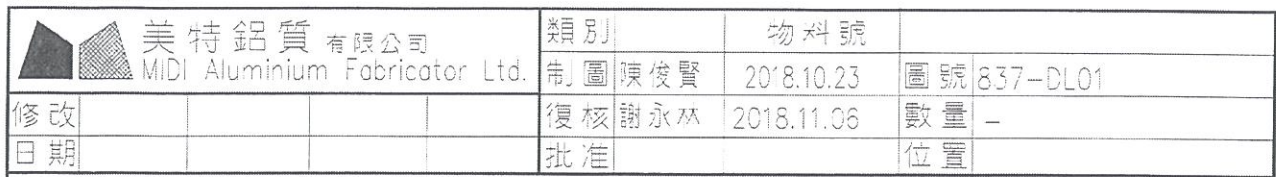 美特鋁質 有限公司
MIDI Aluminium Fabricator Ltd.
類別 物料號
制圖 陳俊賢 2018.10.23 圖號 837-DL01
修改 復核 謝永林 2018.11.06 數量 -
日期 批准 位置